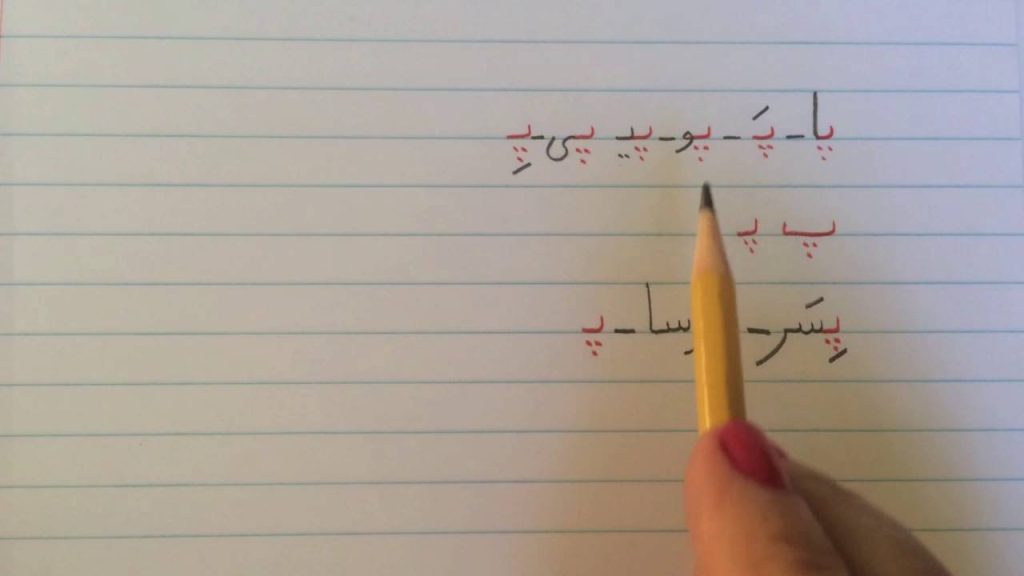 پا - پَ - پو - پیـ پی - پِـ
پ پـ
پِسَر - سا - پـ